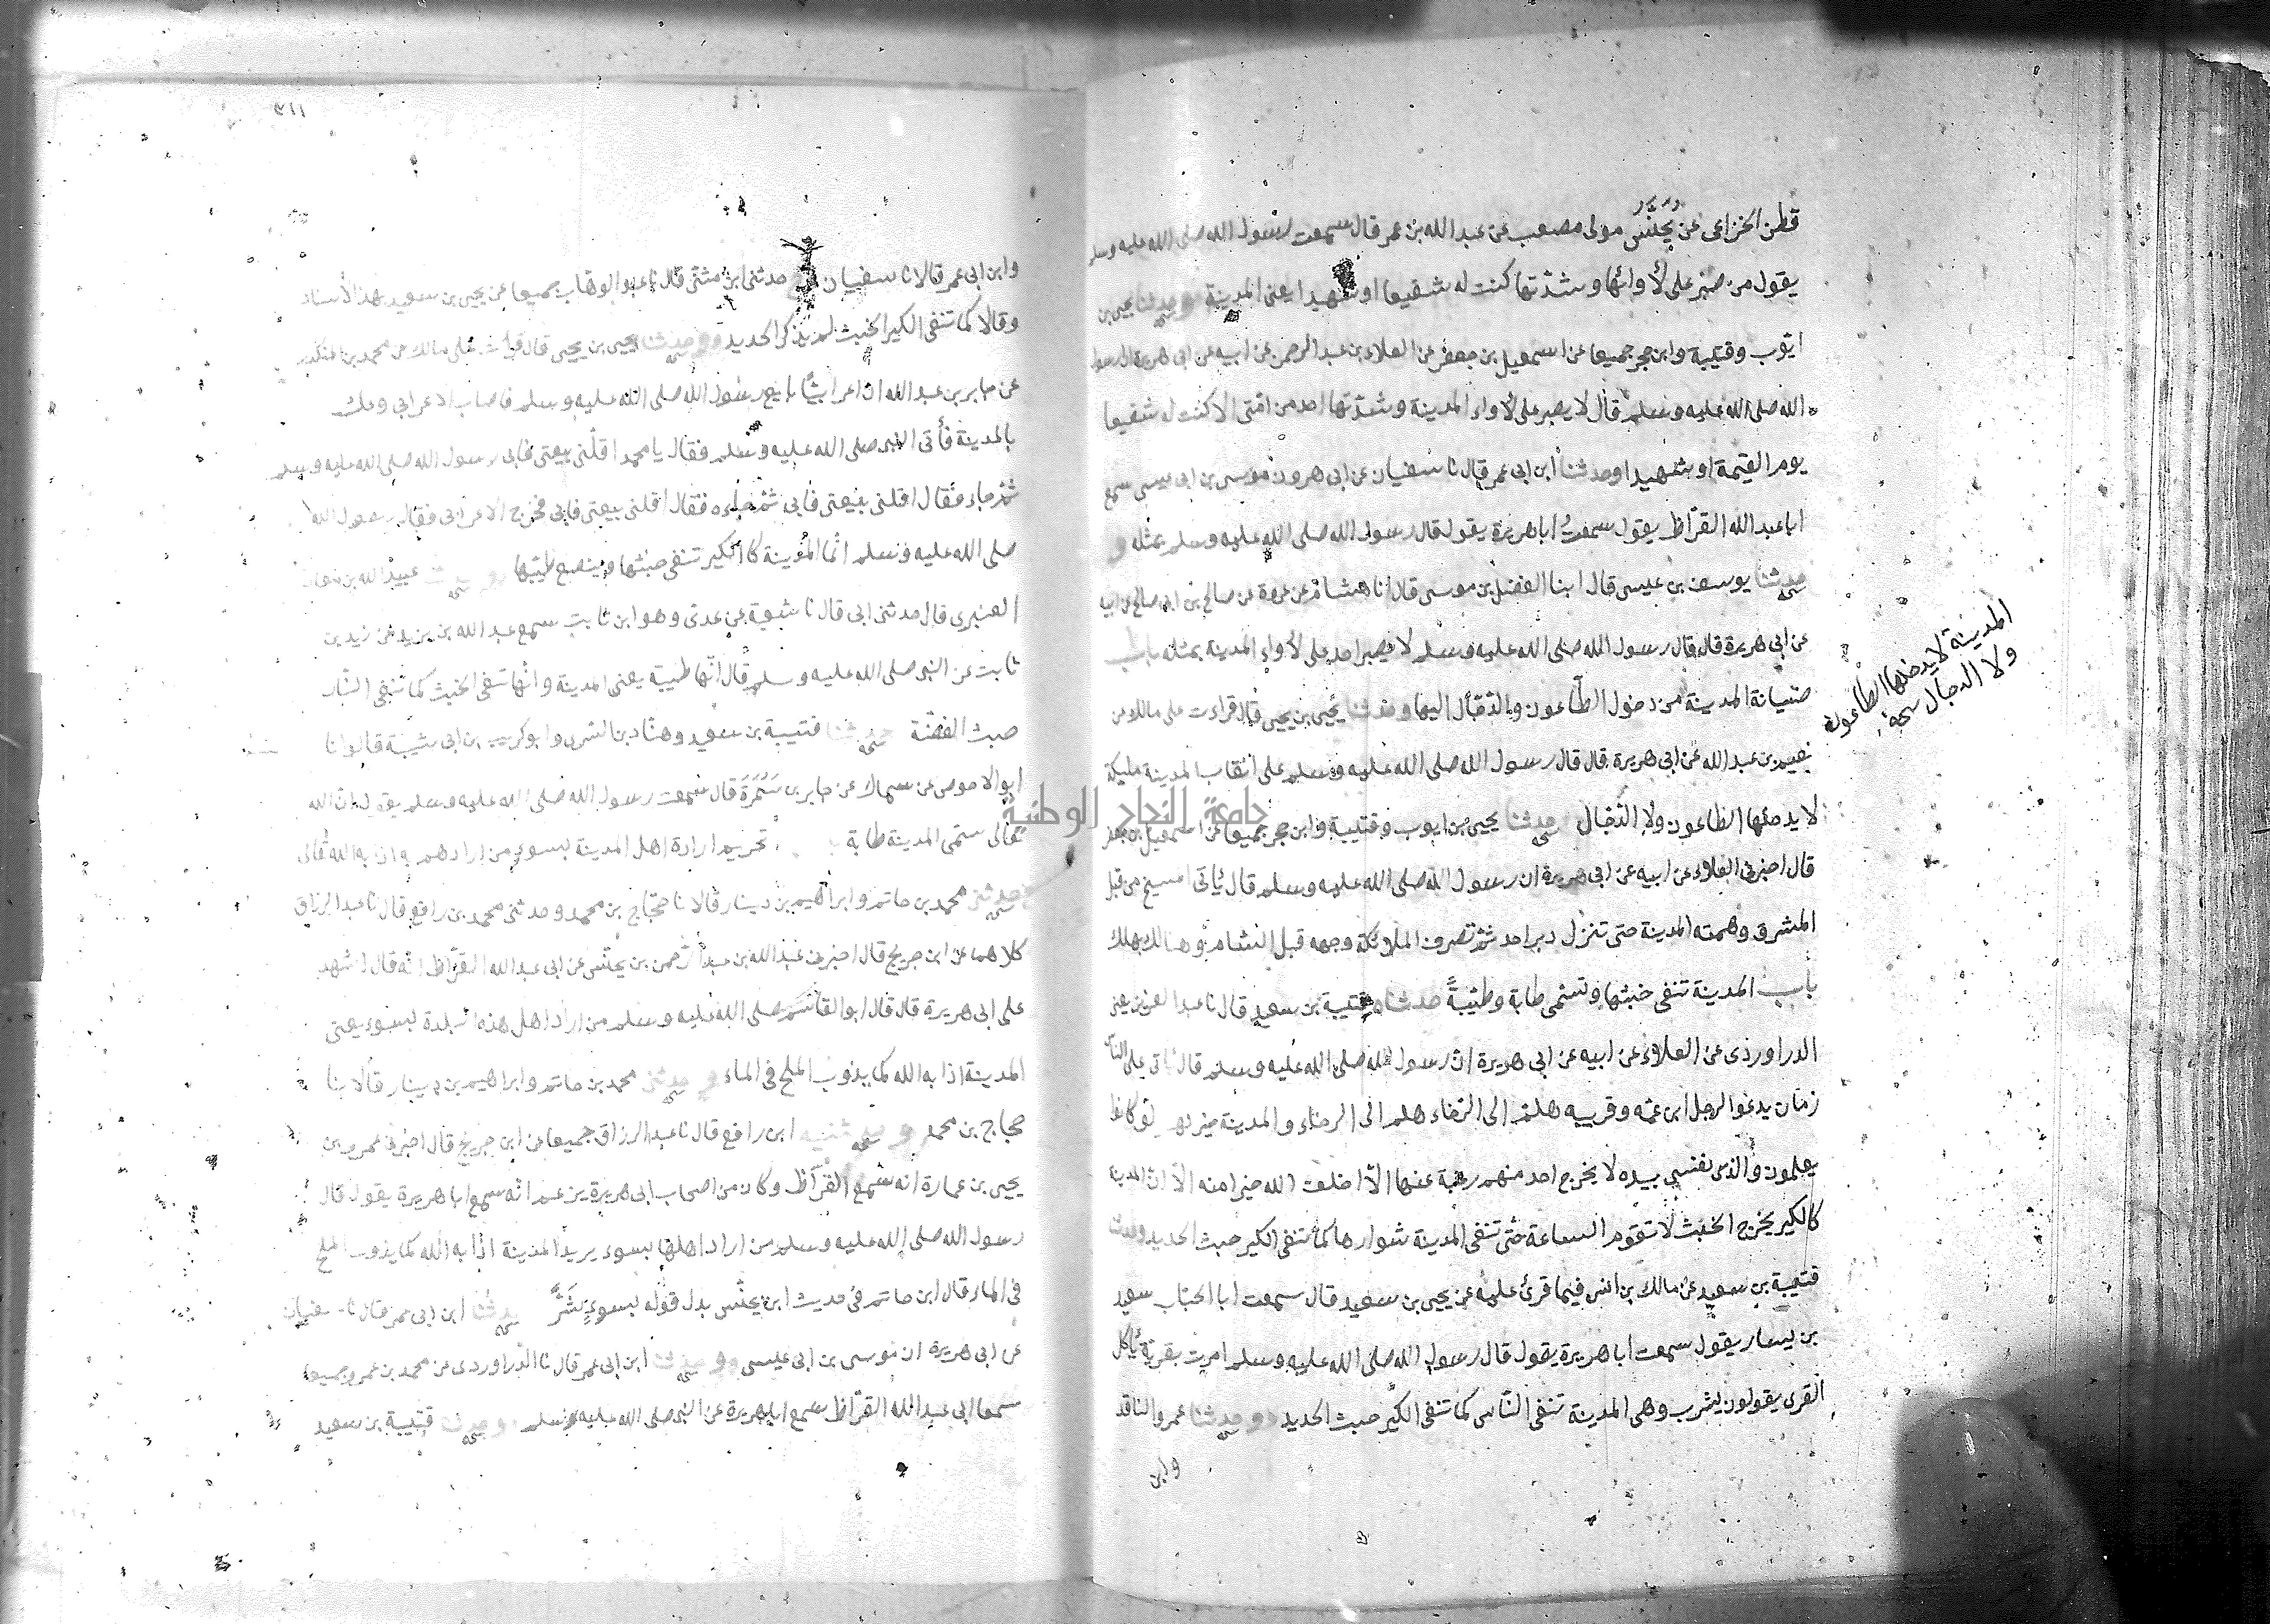 قطن الخزاعى عن يحنس مولى مصعب عن عبد الله بن عمر قال سمعت رسول الله صلى الله عليه وسلم
يقول من صبر على لأوائها وشدتها كنت له شفيعا او شهيدا يعنى المدينة وحدثنا يحيى بن
ايوب وقتيبة وابن حجر جميعا عن اسمعيل بن جعفر عن العلاء بن عبد الرحمن عن ابيه عن ابى هريرة ان رسول
الله صلى الله عليه وسلم قال لا يصبر على لأواء المدينة وشدتها احد من امتى الا كنت له شفيعا
يوم القيمة او شهيدا وحدثنا ابن ابى عمر قال نا سفيان عن ابى هرون موسى بن ابى عيسى سمع
ابا عبد الله القرّاظ يقول سمعت ابا هريرة يقول قال رسول الله صلى الله عليه وسلم بمثله و
حدثنا يوسف بن عيسى قال ابنا الفضل بن موسى قال انا هشام عن عروة عن صالح بن ابى صالح عن ابيه
عن ابى هريرة قال قال رسول الله صلى الله عليه وسلم لا يصبر احد على لأواء المدينة بمثله باب
صيانة المدينة من دخول الطّاعون والدّجّال اليها وحدثنا يحيى بن يحيى قال قراءت على مالك عن
نعيم بن عبد الله عن ابى هريرة قال قال رسول الله صلى الله عليه وسلم على انقاب المدينة مليكة
لا يدخلها الطاعون ولا الدّجّال وحدثنا يحيى بن ايوب وقتيبة وابن حجر جميعا عن اسمعيل بن جعفر
قال اخبرنى العلاء عن ابيه عن ابى هريرة ان رسول الله صلى الله عليه وسلم قال يأتى المسيح من قبل
المشرق وهمته المدينة حتى تنزل دبر احد ثم تصرف الملائكة وجهه قبل الشام وهنالك يهلك
باب المدينة تنفى خبثها وتسمى طابة وطيبةً حدثنا قتيبة بن سعيد قال نا عبد العزيز يعنى
الدراوردى عن العلاء عن ابيه عن ابى هريرة ان رسول الله صلى الله عليه وسلم قال يأتى على الناس
زمان يدعو الرجل ابن عمّه وقريبه هلم الى الرّخاء هلم الى الرخاء والمدينة خير لهم لو كانوا
يعلمون والذى نفسى بيده لا يخرج احد منهم رغبة عنها الّا اخلف الله خيرا منه الا ان المدينة
كالكير يخرج الخبث لا تقوم الساعة حتى تنفى المدينة شرارها كما تنفى الكير خبث الحديد وحدثنا
قتيبة بن سعيد عن مالك بن انس فيما قرئ عليه عن يحيى بن سعيد قال سمعت ابا الحباب سعيد
بن يسار يقول سمعت ابا هريرة يقول قال رسول الله صلى الله عليه وسلم امرت بقرية تأكل
القرى يقولون يثرب وهى المدينة تنفى النّاس كما تنفى الكير خبث الحديد وحدثنا عمرو الناقد
وابن
المدينة لا يدخلها الطاعون
ولا الدجال
٣١١
وابن ابى عمر قالا نا سفيان ح وحدثنى ابن مثنى قال نا عبد الوهاب جميعا عن يحيى بن سعيد بهذا الأسناد
وقالا كما تنفى الكير الخبث لم يذكر الحديد وحدثنا يحيى بن يحيى قال قرات على مالك عن محمد بن المنكدر
عن جابر بن عبد الله ان اعرابيًّا بايع رسول الله صلى الله عليه وسلم فاصاب الاعرابى وعك
بالمدينة فأتى النبى صلى الله عليه وسلم فقال يا محمد اقلنى بيعتى فابى رسول الله صلى الله عليه وسلم
ثم جاء فقال اقلنى بيعتى فابى ثم جاءه فقال اقلنى بيعتى فابى فخرج الاعرابى فقال رسول الله
صلى الله عليه وسلم انما المدينة كالكير تنفى خبثها وينصع طيبها وحدثنا عبيد الله بن معاذ
العنبرى قال حدثنى ابى قال نا شعبة عن عدى وهو ابن ثابت سمع عبد الله بن يزيد عن زيد بن
ثابت عن النبى صلى الله عليه وسلم قال انّها طيبة يعنى المدينة وانّها تنفى الخبث كما تنفى النّار
خبث الفضّة وحدثنا قتيبة بن سعيد وهنّاد بن السّرى وابو كريب بن ابى شيبة قالوا نا
ابو الاحوص عن سماك عن جابر بن سَمُرَة قال سمعت رسول الله صلى الله عليه وسلم يقول ان الله
تعالى سمّى المدينة طابة تحريم ارادة اهل المدينة بسوء من ارادهم به اذابه الله تعالى
حدثنى محمد بن حاتم وابراهيم بن دينار قالا نا حجّاج بن محمد وحدثنى محمد بن رافع قال نا عبد الرزاق
كلاهما عن ابن جريج قال اخبرنى عبد الله بن عبد الرحمن بن يحنّس عن ابى عبد الله القرّاظ انّه قال اشهد
على ابى هريرة قال قال ابو القاسم صلى الله عليه وسلم من اراد اهل هذه البلدة بسوء يعنى
المدينة اذابه الله كما يذوب الملح فى الماء وحدثنى محمد بن حاتم وابراهيم بن دينار قالا نا
حجاج بن محمد وحدثنيه ابن رافع قال نا عبد الرزاق جميعا عن ابن جريج قال اخبرنى عمرو بن
يحيى بن عمارة انه سمع القرّاظ وكان من اصحاب ابى هريرة يزعم انّه سمع ابا هريرة يقول قال
رسول الله صلى الله عليه وسلم من اراد اهلها بسوء يريد المدينة اذابه الله كما يذوب الملح
فى الماء قال ابن حاتم فى حديث ابن يحنّس بدل قوله بسوءٍ شَرًّا حدثنا ابن ابى عمر قال نا سفيان
عن ابى هريرة ان موسى بن ابى عيسى وحدثنا ابن ابى عمر قال نا الدّراوردى عن محمد بن عمرو جميعا
سمعا ابى عبد الله القرّاظ سمع ابا هريرة عن النبى صلى الله عليه وسلم وحدثنا قتيبة بن سعيد
جامعة النجاح الوطنية